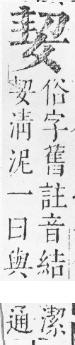 㛃
俗字舊註音結
㛃清泥一曰與
潔
通